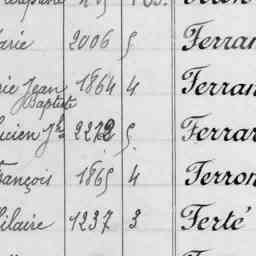 arie 2006 5 Ferran
rie Jean Baptiste 1864 4 Ferran
ucien Jh 2272 5. Ferrar
rançois 1865 4 Ferron
ilaire 1237 3 Ferté